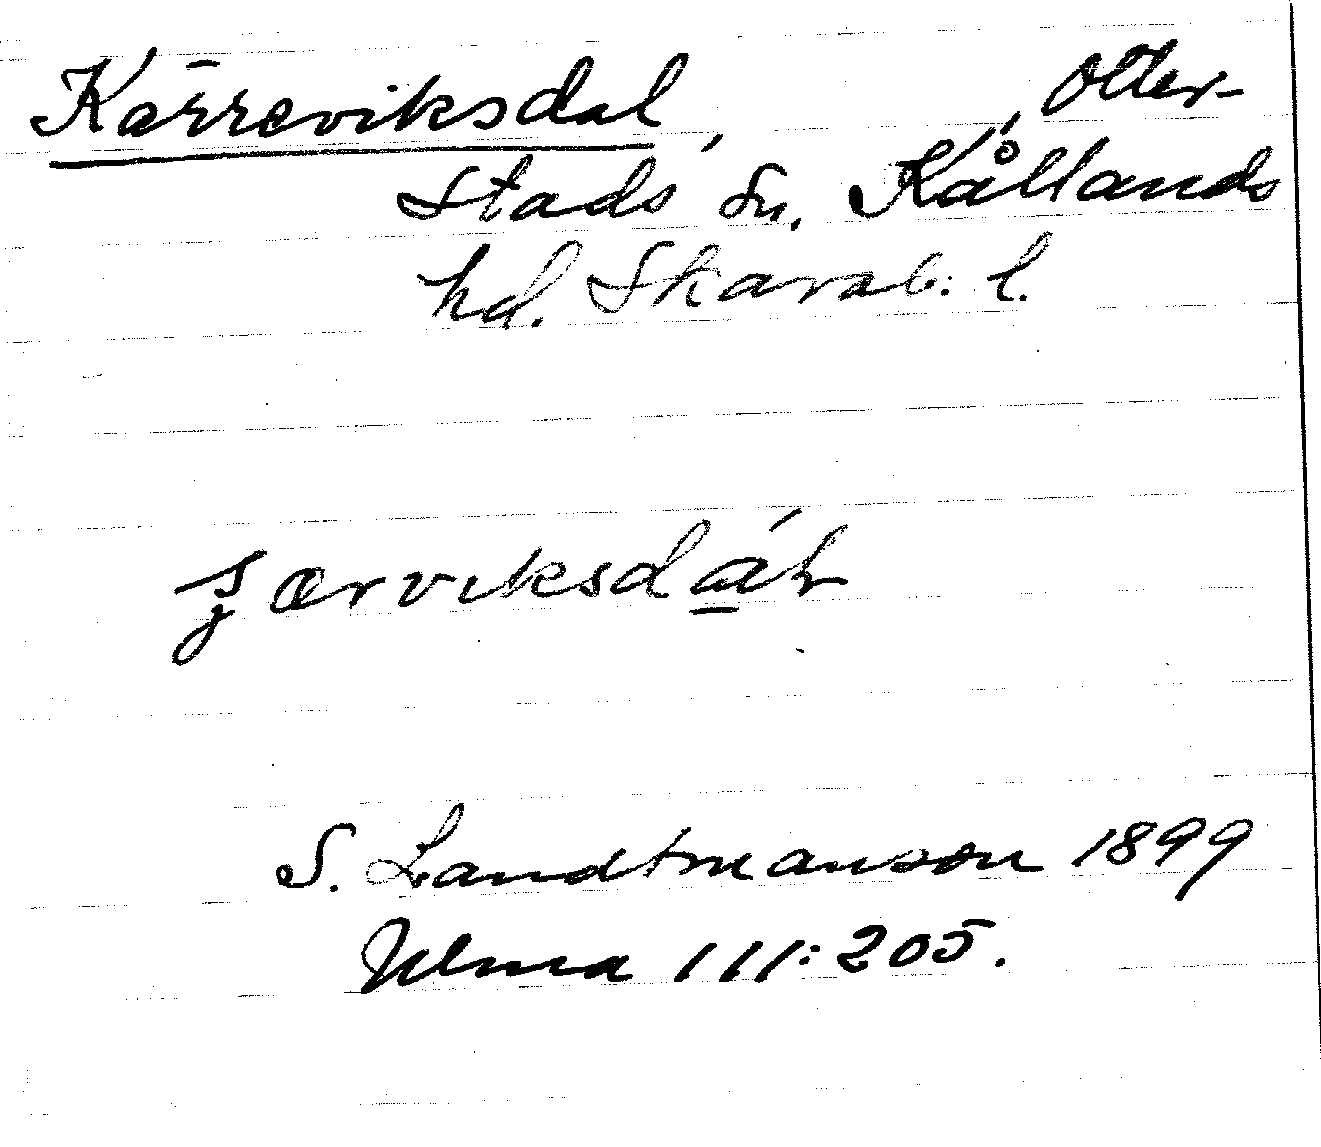 Kärreviksdal, Otter-
stads sn, Kållands
hd. Skarab. l.
S. Landtmanson 1899
Ulma 111:205.